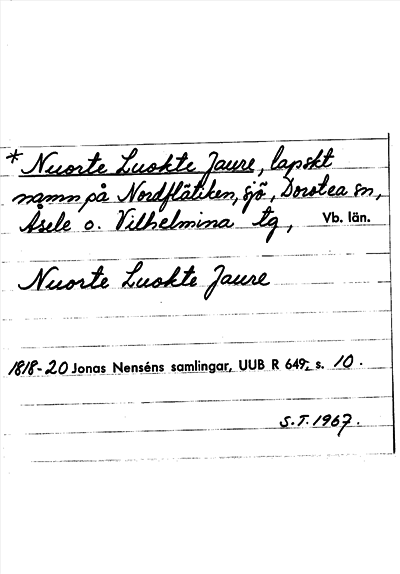 * Nuorte Luokte Jaure, lapskt
namn på Nordflätiken, sjö, Dorotea sn,
Åsele o. Vilhelmina tg, Vb. län.
Nuorte Luokte Jaure
1818-20 Jonas Nenséns samlingar, UUB R 649: s. 10.
S.T. 1967.